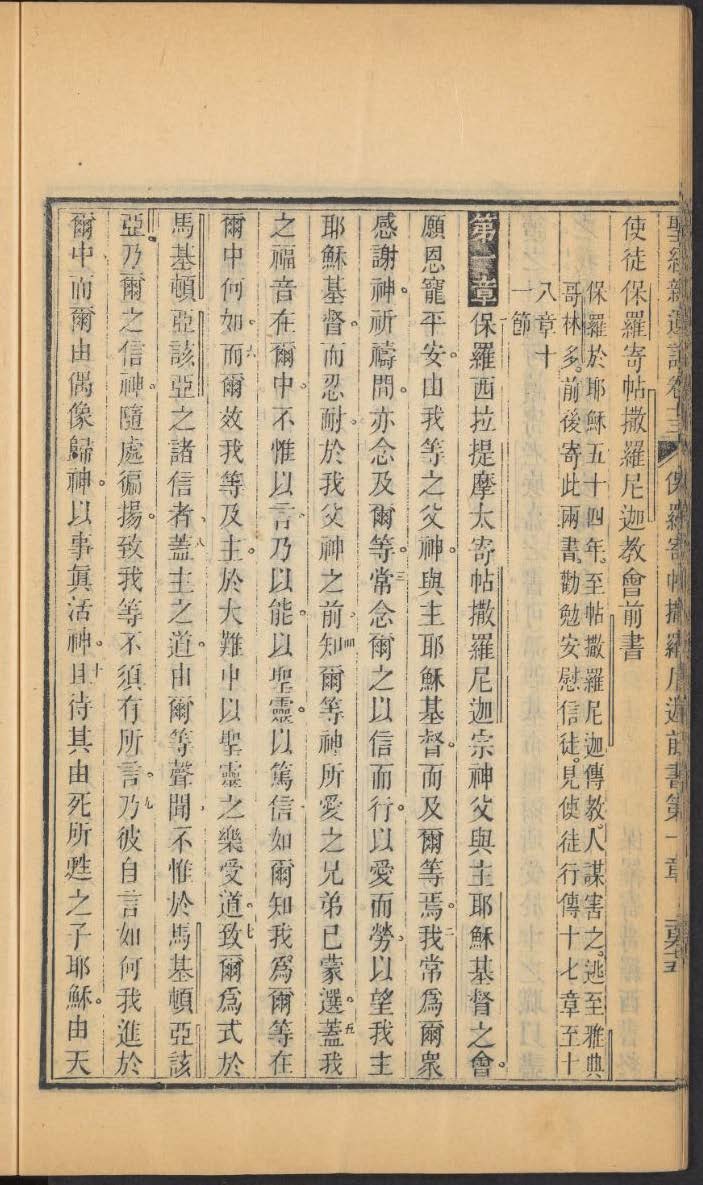 聖經新遺詔卷十三 保羅寄帖撒羅尼迦前書第一章
使徒保羅寄帖撒羅尼迦教會前書
保羅於耶穌五十四年。至帖撒羅尼迦傳教。人謀害之。逃至雅典
哥林多。前後寄此兩書。勸勉安慰信徒。見使徒行傳十七章至十
八章十
一節
第一章 一保羅西拉提摩太寄帖撒羅尼迦宗神父與主耶穌基督之會。
願恩寵平安。由我等之父神。與主耶穌基督。而及爾等焉。二我常爲爾衆
感謝神。祈禱間。亦念及爾等。三常念爾之以信而行。以愛而勞。以望我主
耶穌基督。而忍耐於我父神之前。四知爾等神所愛之兄弟已蒙選。五蓋我
之福音在爾中。不惟以言。乃以能。以聖靈。以篤信。如爾知我爲爾等在
爾中何如。六而爾效我等及主。於大難中以聖靈之樂受道。七致爾爲式於
馬基頓亞該亞之諸信者。八蓋主之道。由爾等聲聞不惟於馬基頓亞該
亞。乃爾之信神。隨處徧揚。致我等不須有所言。九乃彼自言如何我進於
爾中。而爾由偶像歸神。以事眞活神。十且待其由死所甦之子耶穌。由天